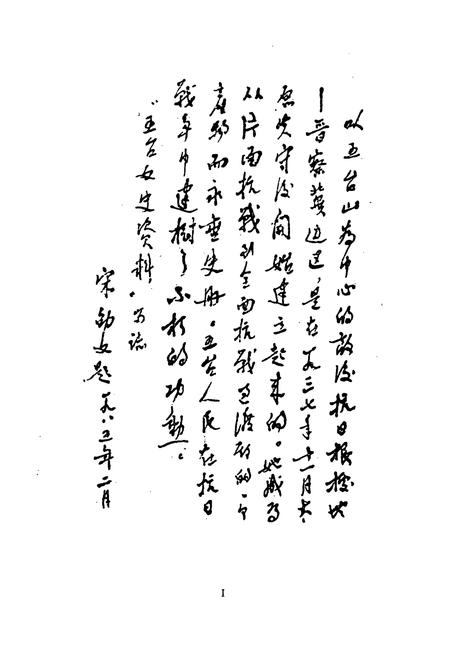 以五台山为中心的敌后抗日根据地
—晋察冀边区，是在一九三七年十一月太
原失守后开始建立起来的。她成为
从片面抗战到全面抗战过渡的
而永垂史册。五台人民在抗日
战争中建树了不朽的功勋。
“五台文史资料”
宋劭文题一九八三年二月
I